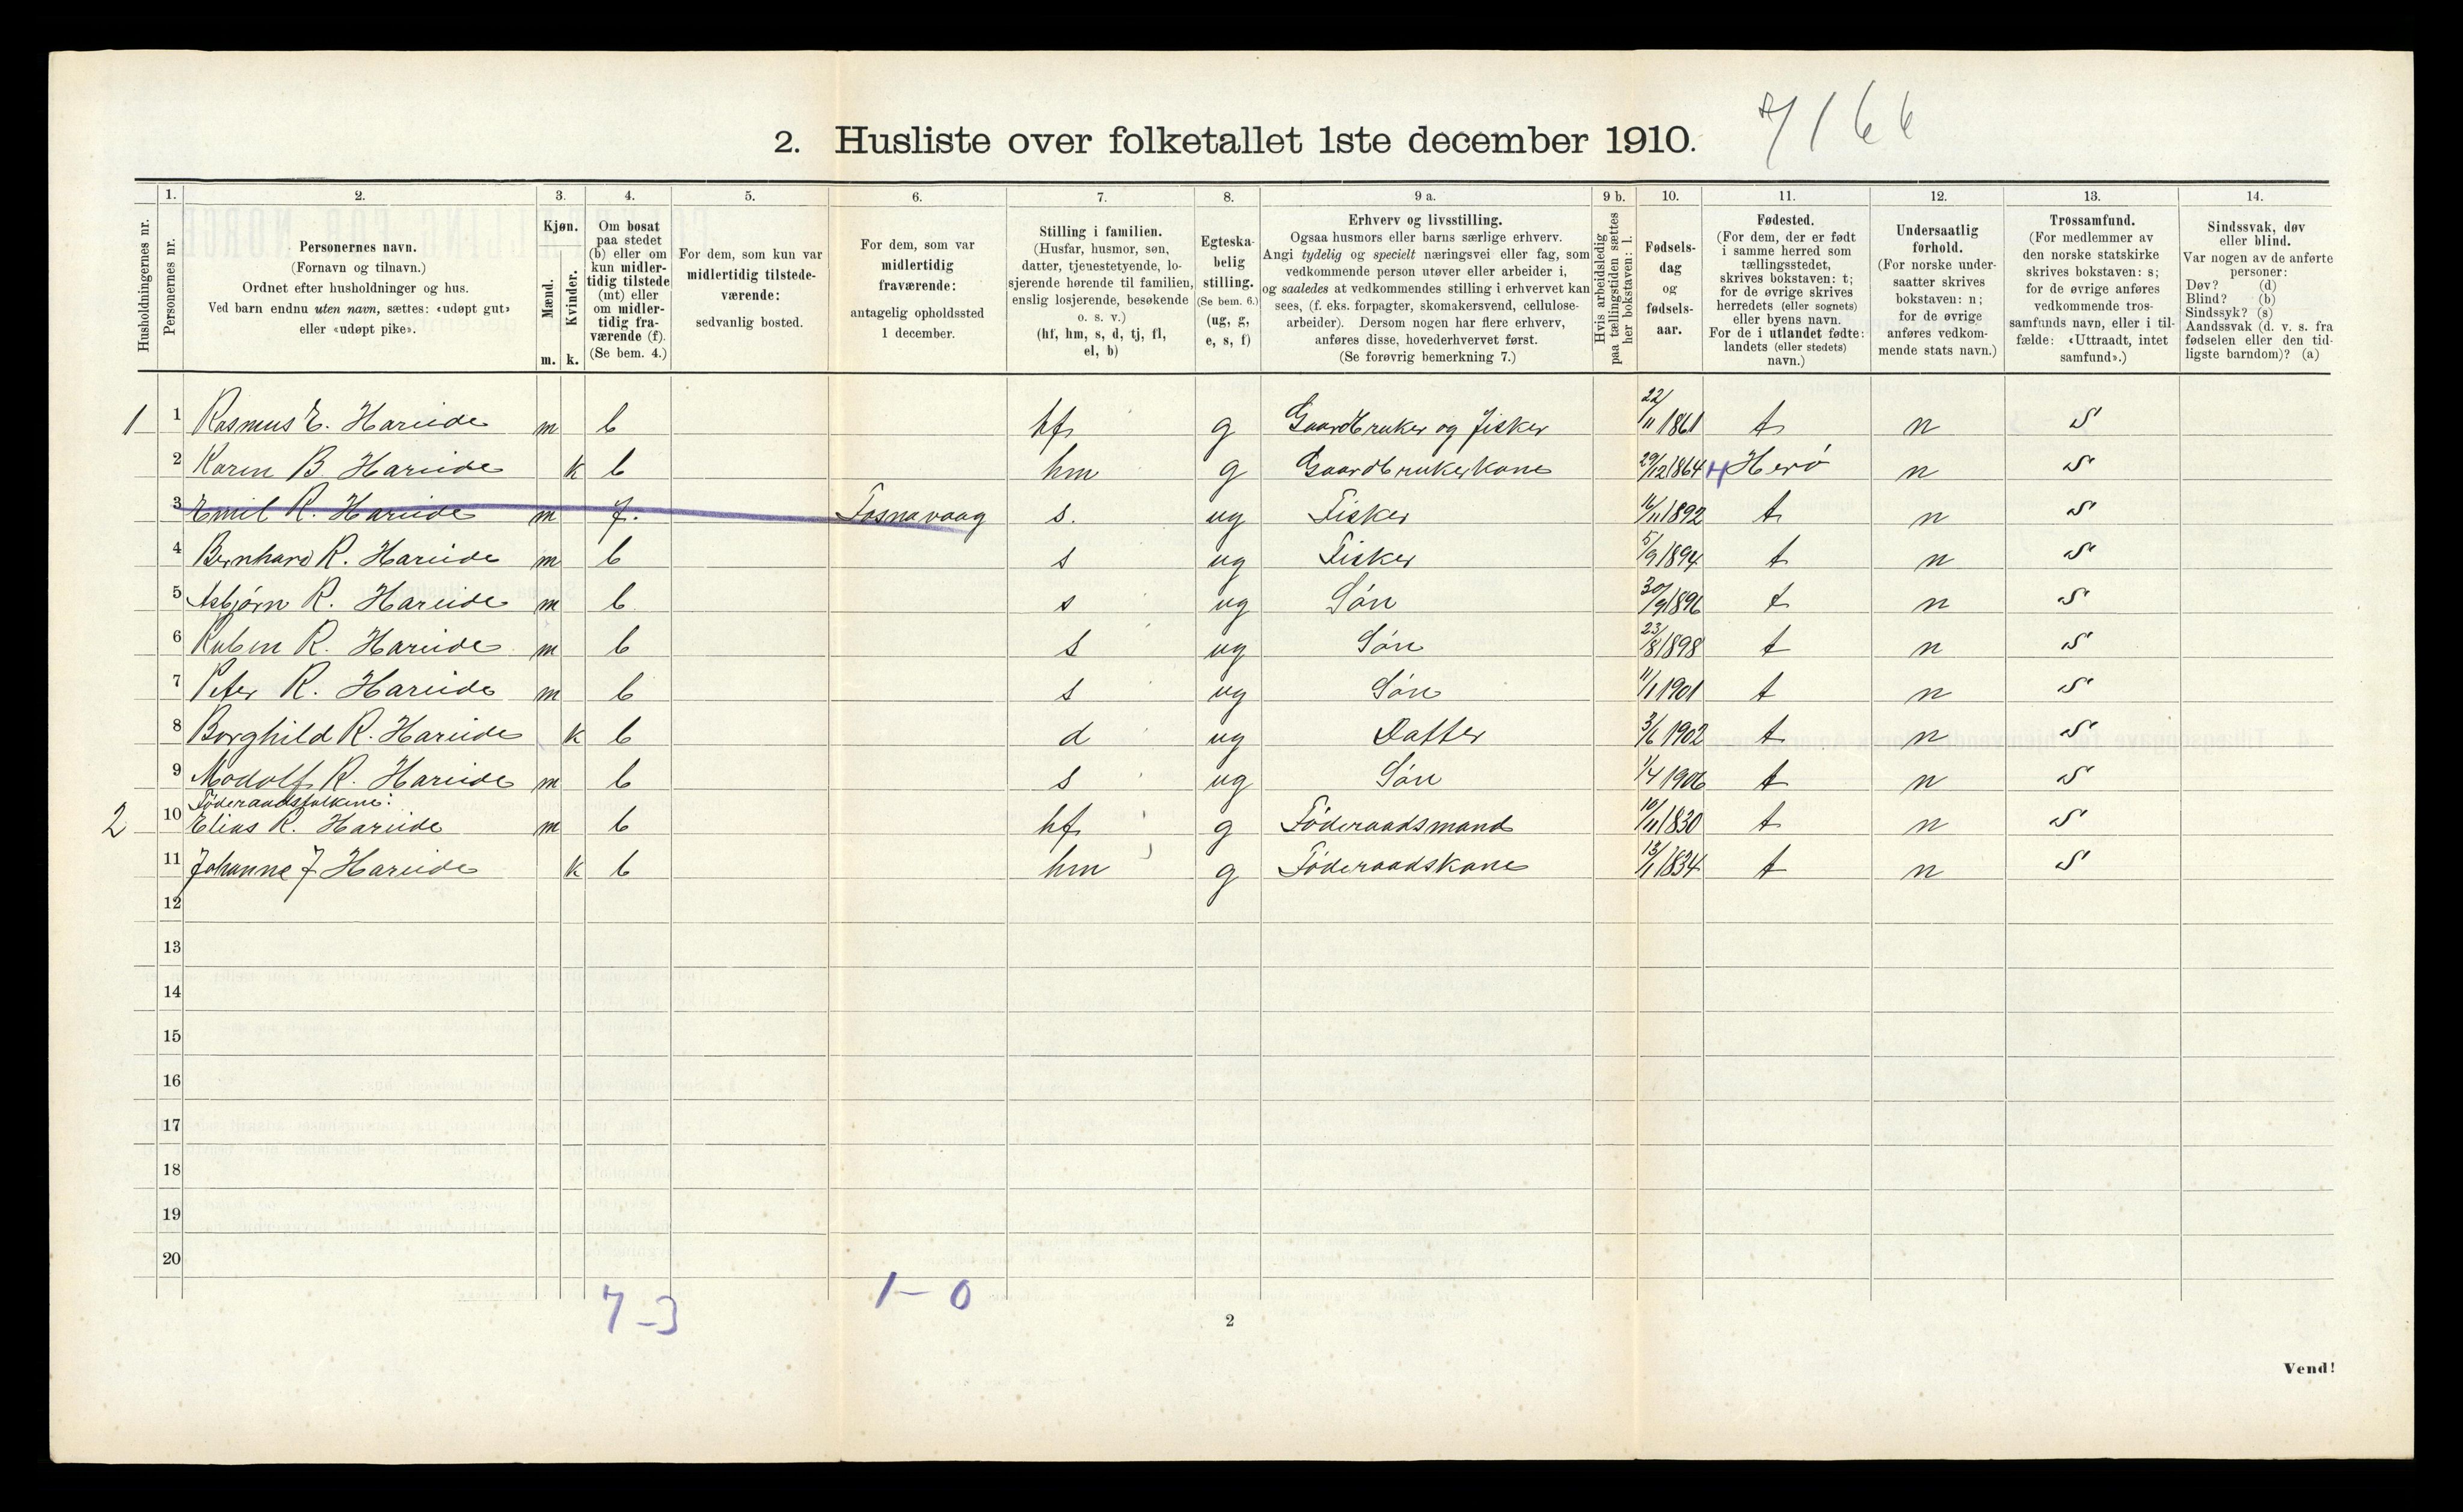 2. Husliste over folketallet 1ste december 1910.
7/66
Husholdningernes nr.
1.
Personernes nr.
2.
Personernes navn.
(Fornavn og tilnavn.)
Ordnet efter husholdninger og hus.
Ved barn endnu uten navn, sættes: «udøpt gut»
eller «udøpt pike».
3.
Kjøn.
Mænd.
Kvinder.
m. k.
4.
Om bosat
paa stedet
(b) eller om
kun midler-
tidig tilstede
(mt) eller
om midler-
tidig fra-
værende (f).
(Se bem. 4.)
5.
For dem, som kun var
midlertidig tilstede-
værende:
sedvanlig bosted.
6.
For dem, som var
midlertidig
fraværende:
antagelig opholdssted
1 december.
7.
Stilling i familien.
(Husfar, husmor, søn,
datter, tjenestetyende, lo-
sjerende hørende til familien,
enslig losjerende, besøkende
o. s. v.)
(hf, hm, s, d, tj, fl,
el, b)
8.
Egteska-
belig
stilling.
(Se bem. 6.)
(ug, g,
e, s, f)
9 a.
Erhverv og livsstilling.
Ogsaa husmors eller barns særlige erhverv.
Angi tydelig og specielt næringsvei eller fag, som
vedkommende person utøver eller arbeider i,
og saaledes at vedkommendes stilling i erhvervet kan
sees, (f. eks. forpagter, skomakersvend, cellulose-
arbeider). Dersom nogen har flere erhverv,
anføres disse, hovederhvervet først.
(Se forøvrig bemerkning 7.)
9 b.
Hvis arbeidsledig
paa tællingstiden sættes
her bokstaven: l.
10.
Fødsels-
dag
og
fødsels-
aar.
11.
Fødested.
(For dem, der er født
i samme herred som
tællingsstedet,
skrives bokstaven: t;
for de øvrige skrives
herredets (eller sognets)
eller byens navn.
For de i utlandet fødte:
landets (eller stedets)
navn.)
12.
Undersaatlig
forhold.
(For norske under-
saatter skrives
bokstaven: n;
for de øvrige
anføres vedkom-
mende stats navn.)
13.
Trossamfund.
(For medlemmer av
den norske statskirke
skrives bokstaven: s;
for de øvrige anføres
vedkommende tros-
samfunds navn, eller i til-
fælde: «Uttraadt, intet
samfund».)
14.
Sindssvak, døv
eller blind.
Var nogen av de anførte
personer:
Døv? (d)
Blind? (b)
Sindssyk? (s)
Aandssvak (d. v. s. fra
fødselen eller den tid-
ligste barndom)? (a)
1 1 Rasmus E. Hareide m b hf g Gaardbruker og fisker 22/11 1861 t n S
2 Karen B Hareide k b hm g Gaardbrukerkone 29/12 1864 H Herö n S
3 Emil R. Hareide m f. Fosnavaag s. ug Fisker 16/11 1892 t n S
4 Bernhard R. Hareide m b s ug Fisker 5/9 1894 t n S
5 Asbjørn R. Hareide m b s ug Søn 30/9 1896 t n S
6 Ruben R. Hareide m b s ug Søn 23/8 1898 t n S
7 Peter R. Hareide m b s ug Søn 11/1 1901 t n S
8 Borghild R. Hareide k b d ug Datter 3/6 1902 t n S
9 Modolf R. Hareide m b s ug Søn 1/4 1906 t n S
Føderaadsfolkene:
2 10 Elias R. Hareide m b hf g Føderaadsmand 10/11 1830 t n S
11 Johanne J Hareide k b hm g Føderaadskone 13/1 1834 t n S
12
13
14
15
16
17
18
19
20
7-3
1-0
2
Vend!